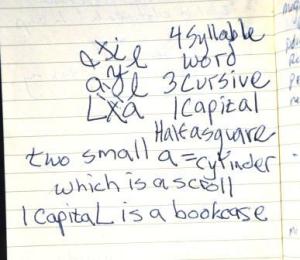 exie 4 Syllable
word
aye 3 Cursive
Lxa 1 Capital
Half a square
two small a = cylinder
which is a scroll
1 Capital is a bookcase